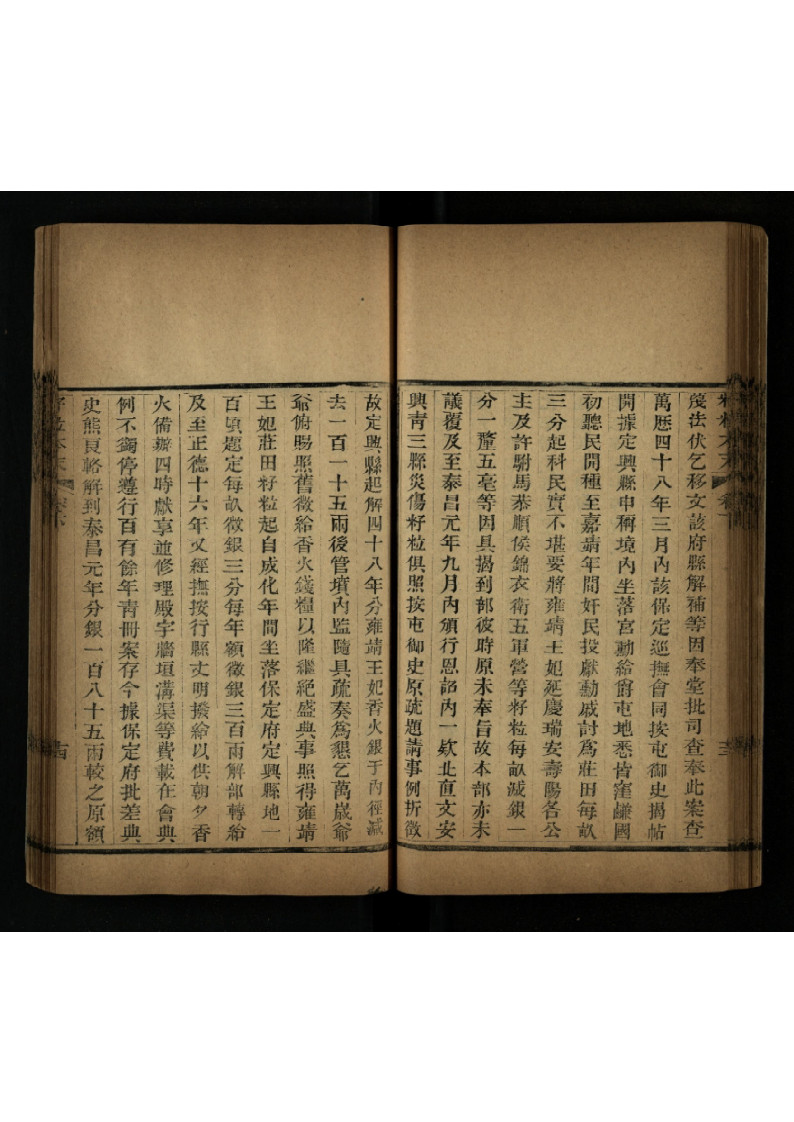 籽粒本末 卷下 十三
㳒法伏乞移文該府縣解補等因奉堂批司查奉此案查
萬歷四十八年三月內該保定巡撫會同按屯御史揭帖
開據定興縣申稱境內坐落宮勳給爵屯地悉皆窪鹻國
初聽民開種至嘉靖年間奸民投獻勳戚討爲莊田每畝
三分起科民實不堪要將雍靖王妃延慶瑞安壽陽各公
主及許駙馬恭順侯錦衣衛五軍營等籽粒每畝減銀一
分一釐五毫等因具揭到部彼時原未奉旨故本部亦未
議覆及至泰昌元年九月內頒行恩詔內一欵北直文安
興靑三縣災傷籽粒俱照按屯御史原疏題請事例折徵
故定興縣起解四十八年分雍靖王妃香火銀于內徑減
去一百一十五兩後管墳內監隨具疏奏爲懇乞萬歲爺
爺俯賜照舊徵給香火錢糧以隆繼絕盛典事照得雍靖
王妃莊田籽粒起自成化年間坐落保定府定興縣地一
百頃題定每畝徵銀三分每年額徵銀三百兩解部轉給
及至正德十六年又經撫按行縣丈明撥給以供朝夕香
火備辦四時獻享並修理殿宇牆垣溝渠等費載在會典
例不蠲停遵行百有餘年靑冊案存今據保定府批差典
史熊良輅解到泰昌元年分銀一百八十五兩較之原額
籽粒本末 卷下 十四